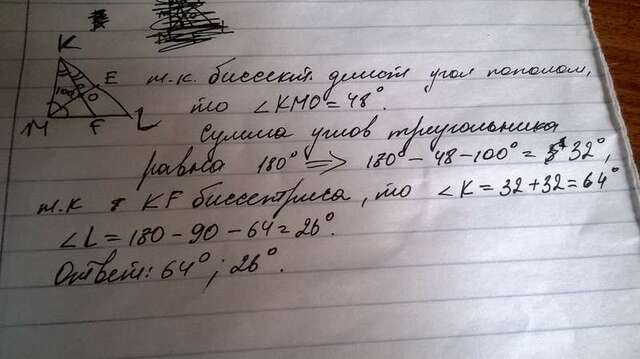 K
E
100°
O
M
F
L
т.к. биссект. делит угол пополам,
то ∠KMO = 48°.
Сумма углов треугольника
равна 180° => 180° - 48 - 100° = 32°,
т.к KF биссектриса, то ∠K = 32 + 32 = 64°
∠L = 180 - 90 - 64 = 26°.
Ответ: 64°; 26°.